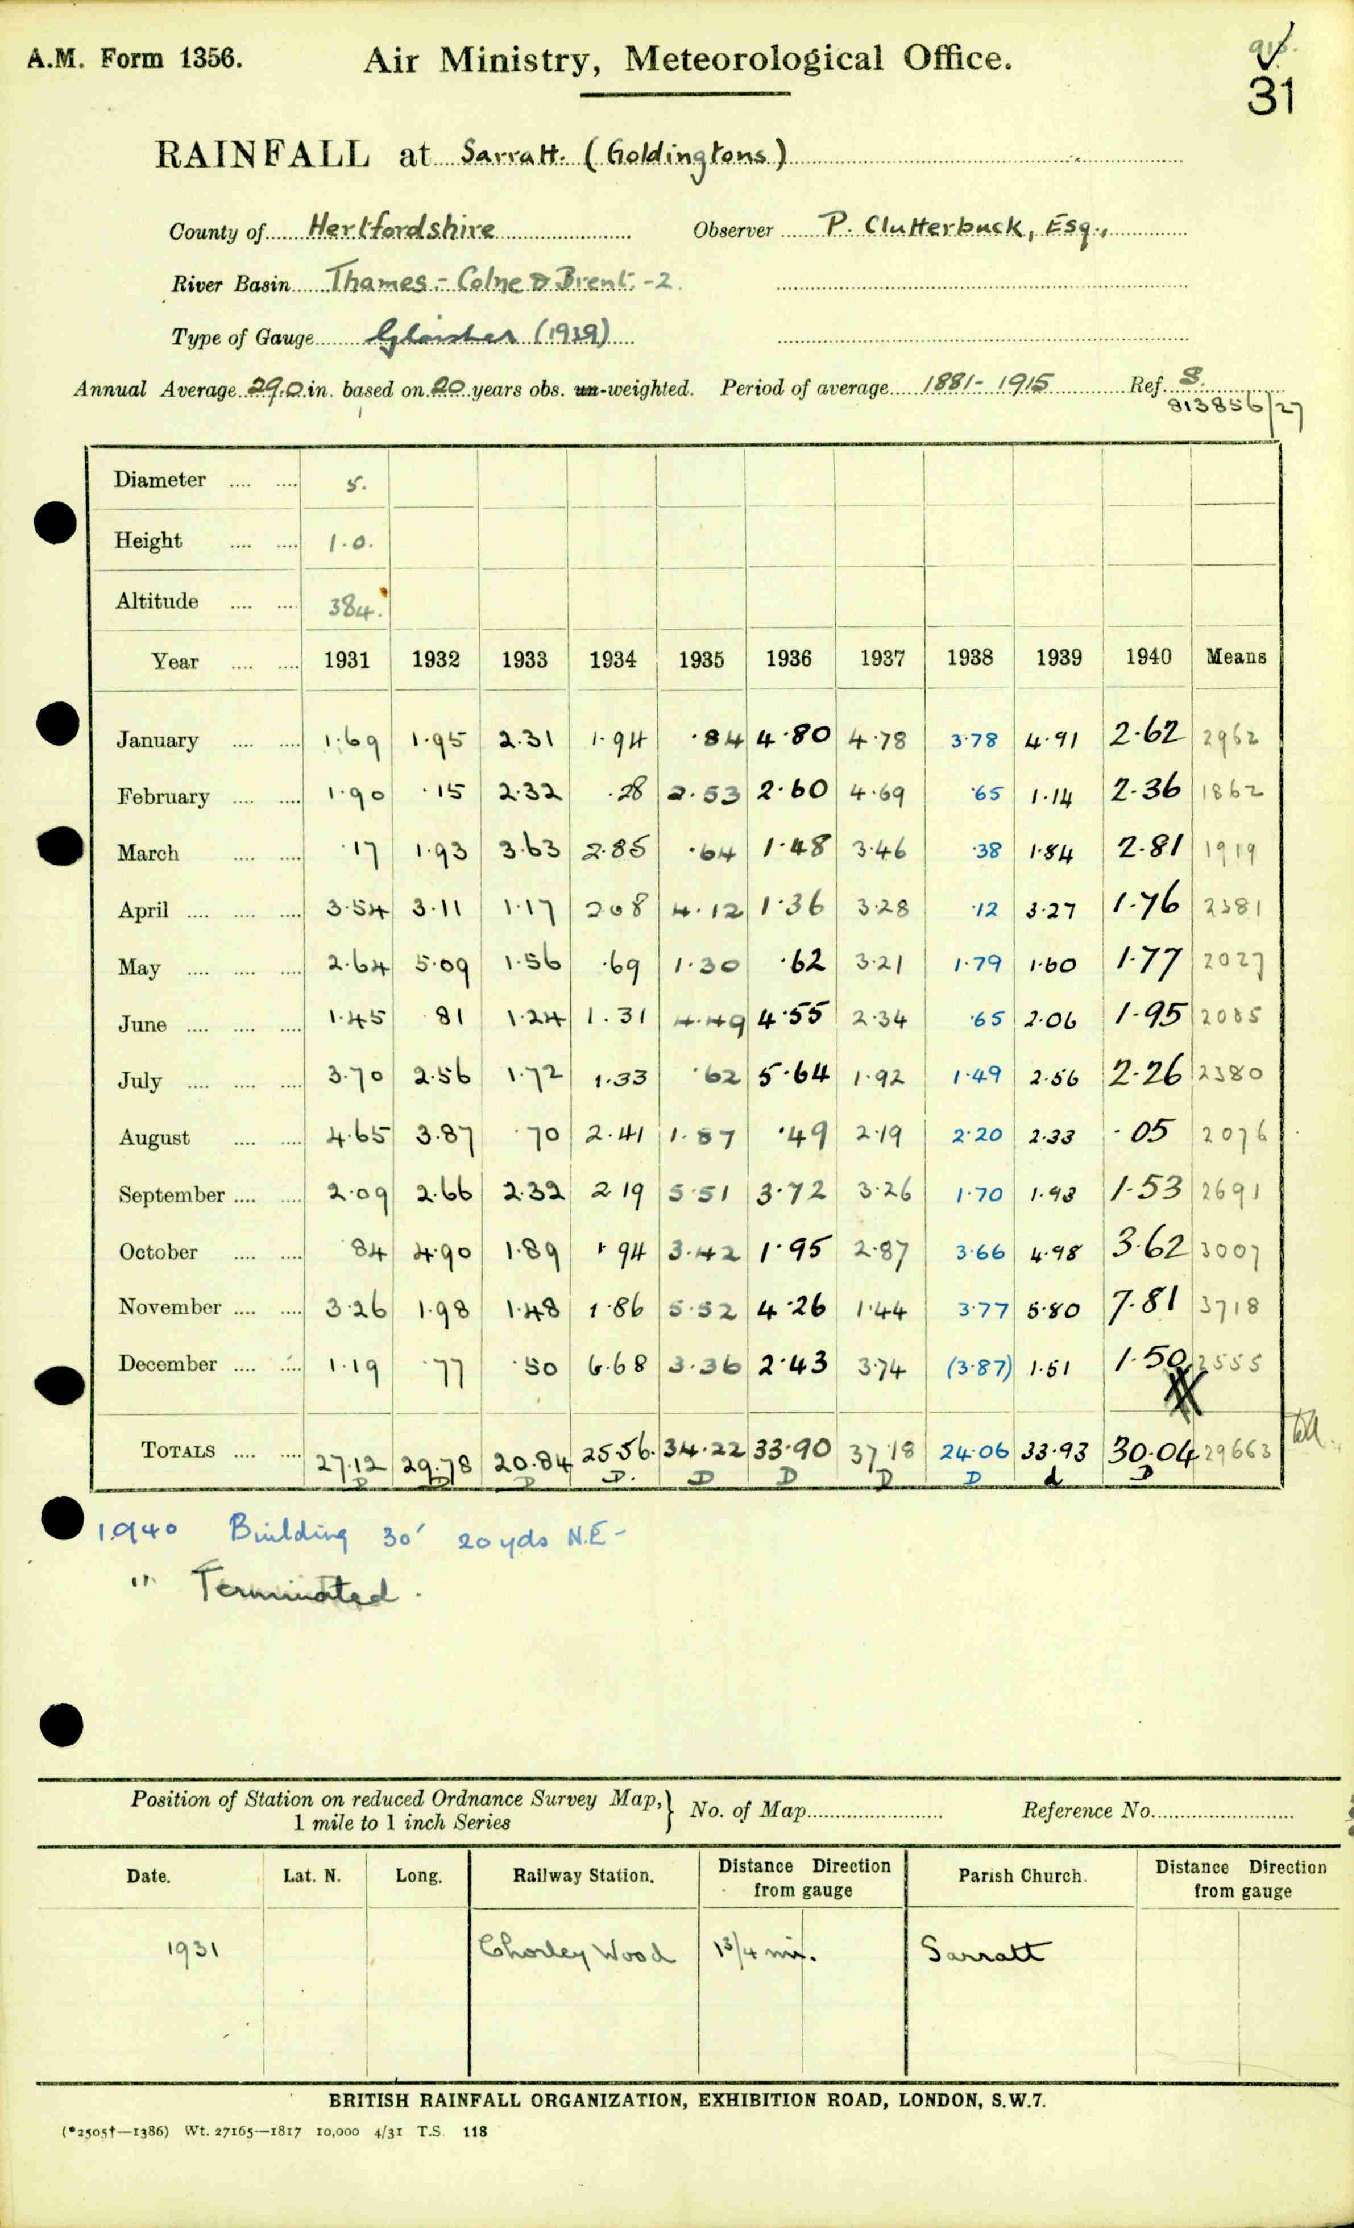 A.M. Form 1356. Air Ministry, Meteorological Office.
31
RAINFALL at Sarratt. (Goldingtons)
County of Hertfordshire Observer P. Clutterbuck, Esq.,
River Basin Thames - Colne & Brent - 2.
Type of Gauge Glaisher (1939)
Annual Average 29.0 in. based on 20 years obs. un-weighted. Period of average 1881-1915 Ref. S.
813856/27
Diameter 5.
Height 1.0.
Altitude 384.
Year 1931 1932 1933 1934 1935 1936 1937 1938 1939 1940 Means
January 1.69 1.95 2.31 1.94 .84 4.80 4.78 3.78 4.91 2.62 2962
February 1.90 .15 2.32 .28 2.53 2.60 4.69 .65 1.14 2.36 1862
March .17 1.93 3.63 2.85 .64 1.48 3.46 .38 1.84 2.81 1919
April 3.54 3.11 1.17 2.08 4.12 1.36 3.28 .12 3.27 1.76 2381
May 2.64 5.09 1.56 .69 1.30 .62 3.21 1.79 1.60 1.77 2027
June 1.45 81 1.24 1.31 4.49 4.55 2.34 .65 2.06 1.95 2085
July 3.70 2.56 1.72 1.33 .62 5.64 1.92 1.49 2.56 2.26 2380
August 4.65 3.87 .70 2.41 1.87 .49 2.19 2.20 2.33 .05 2076
September 2.09 2.66 2.32 2.19 5.51 3.72 3.26 1.70 1.93 1.53 2691
October 84 4.90 1.89 1.94 3.42 1.95 2.87 3.66 4.98 3.62 3007
November 3.26 1.98 1.48 1.86 5.52 4.26 1.44 3.77 5.80 7.81 3718
December 1.19 .77 .50 6.68 3.36 2.43 3.74 (3.87) 1.51 1.50 2555
TOTALS 27.12 29.78 20.84 25.56. 34.22 33.90 37.18 24.06 33.93 30.04 29663
D D D D. D D D D d D
1940 Building 30' 20 yds N.E -
" Terminated.
Position of Station on reduced Ordnance Survey Map, 1 mile to 1 inch Series } No. of Map Reference No.
Date. Lat. N. Long. Railway Station. Distance Direction from gauge Parish Church. Distance Direction from gauge
1931 Chorley Wood 1 3/4 mi. Sarratt
BRITISH RAINFALL ORGANIZATION, EXHIBITION ROAD, LONDON, S.W.7.
(*2505†—1386) Wt. 27165—1817 10,000 4/31 T.S. 118